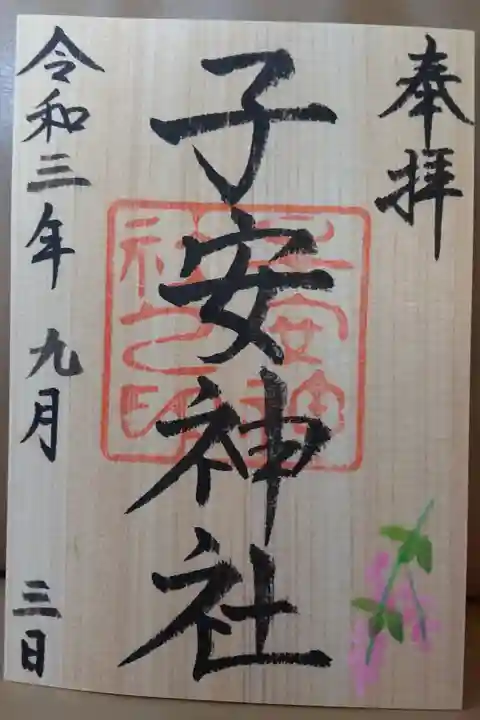 奉拝
子安神社
子安神
社之印
令和三年 九月 三日